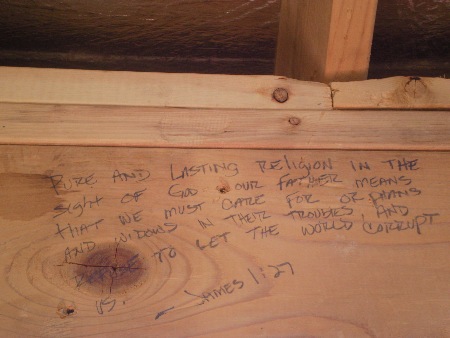 PURE AND LASTING RELIGION IN THE
SIGHT OF GOD OUR FATHER MEANS
THAT WE MUST CARE FOR ORPHANS
AND WIDOWS IN THEIR TROUBLES AND
TO LET THE WORLD CORRUPT
US.
JAMES 1:27